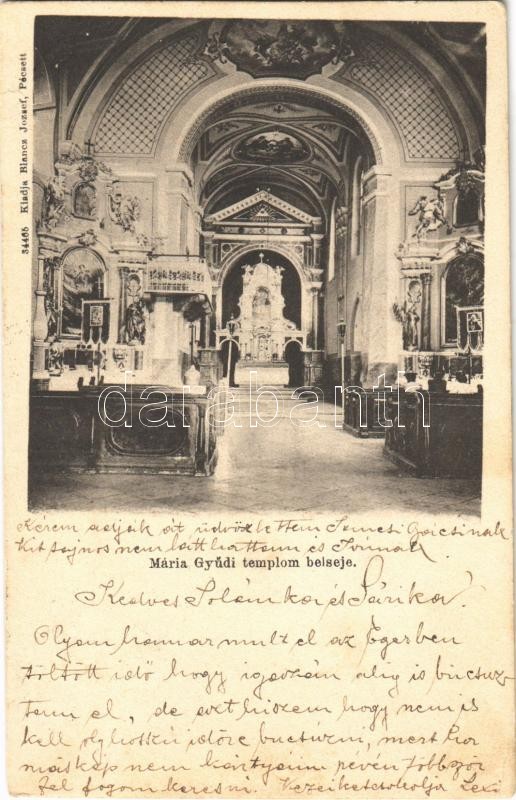 34465 Kiadja Blancz József, Pécsett
darabanth
Kérem adják át üdvözlettem Jencsi bácsinak
kit sajnos nem láthattam és Irmának
Mária Gyűdi templom belseje.
Kedves Solánka és Sárika!
Olyan hamar mult el az Egerben
töltött idő hogy igazán alig is bucsuz-
tam el, de azt hiszem hogy nem is
kell oly hosszú időre bucsúzni, mert ha
máskép nem kártyáim révén többször
fel fogom keresni. Kezeiket csókolja Lexi